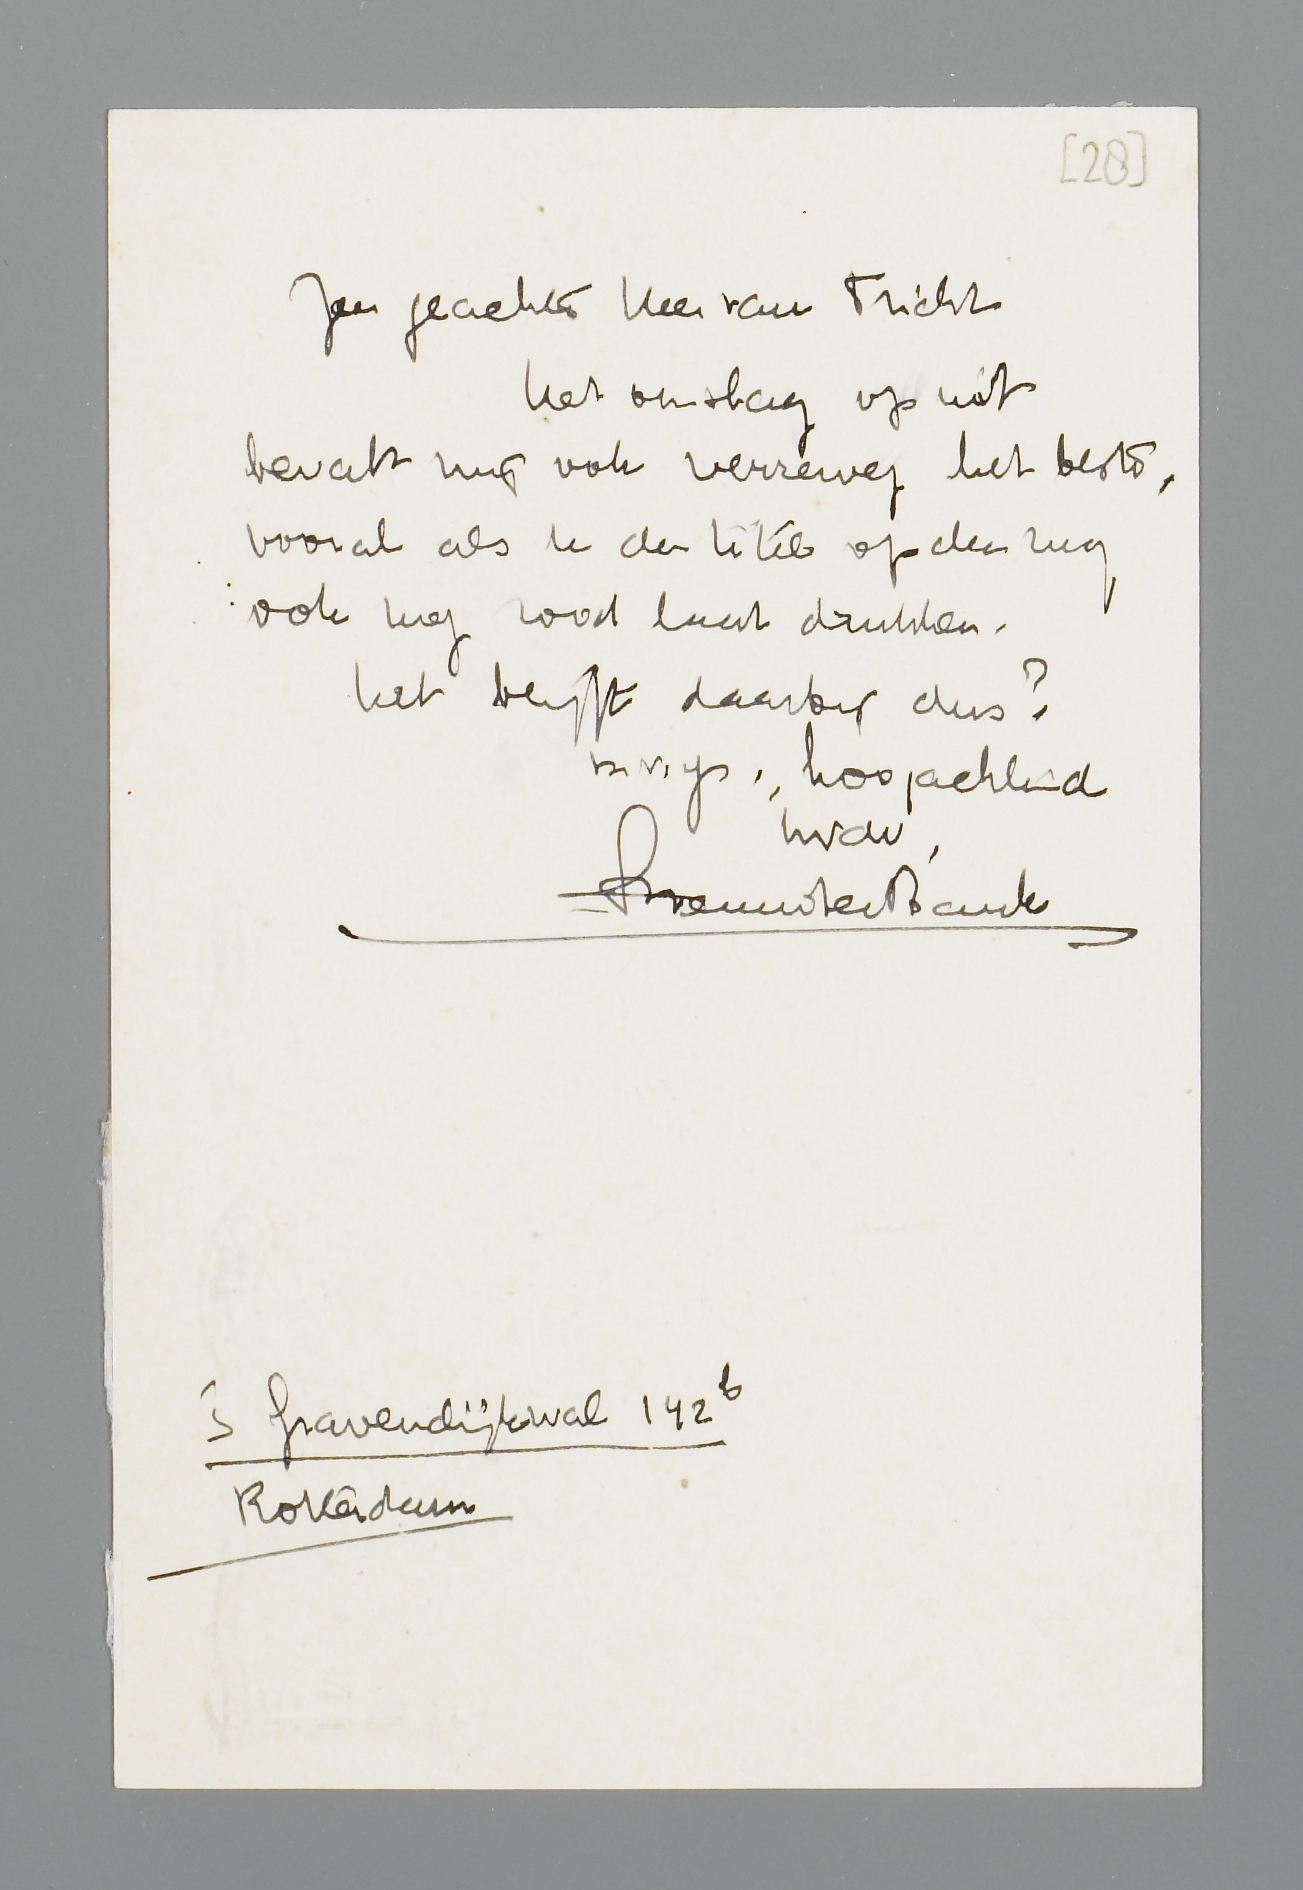 [28]
Zeer geachte Heer van Tricht
het omslag op wit
bevalt mij ook verreweg het beste,
vooral als u den titel op den rug
ook nog rood laat drukken.
Het blijft daarbij dus?
hoogachtend
Menno ter Braak
's Gravendijkwal 142b
Rotterdam